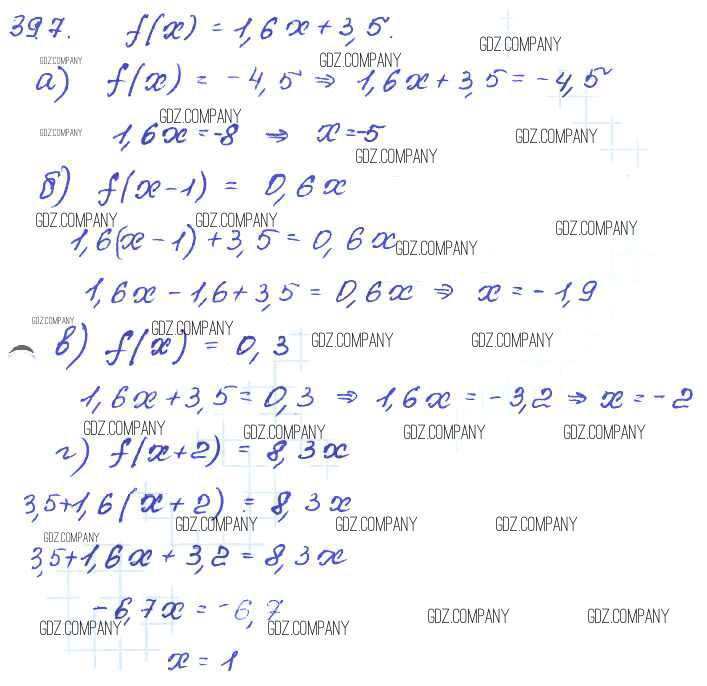 397. f(x) = 1,6x + 3,5.
GDZ.COMPANY GDZ.COMPANY GDZ.COMPANY
а) f(x) = -4,5 ⇒ 1,6x + 3,5 = -4,5
GDZ.COMPANY
GDZ.COMPANY 1,6x = -8 ⇒ x = -5 GDZ.COMPANY
GDZ.COMPANY
б) f(x-1) = 0,6x
GDZ.COMPANY GDZ.COMPANY GDZ.COMPANY
1,6(x-1) + 3,5 = 0,6x GDZ.COMPANY
1,6x - 1,6 + 3,5 = 0,6x ⇒ x = -1,9
GDZ.COMPANY GDZ.COMPANY GDZ.COMPANY GDZ.COMPANY
в) f(x) = 0,3
1,6x + 3,5 = 0,3 ⇒ 1,6x = -3,2 ⇒ x = -2
GDZ.COMPANY GDZ.COMPANY GDZ.COMPANY GDZ.COMPANY
г) f(x+2) = 8,3x
3,5+1,6(x+2) = 8,3x
GDZ.COMPANY GDZ.COMPANY GDZ.COMPANY
GDZ.COMPANY
3,5+1,6x + 3,2 = 8,3x
-6,7x = -6,7
GDZ.COMPANY GDZ.COMPANY GDZ.COMPANY GDZ.COMPANY
x = 1